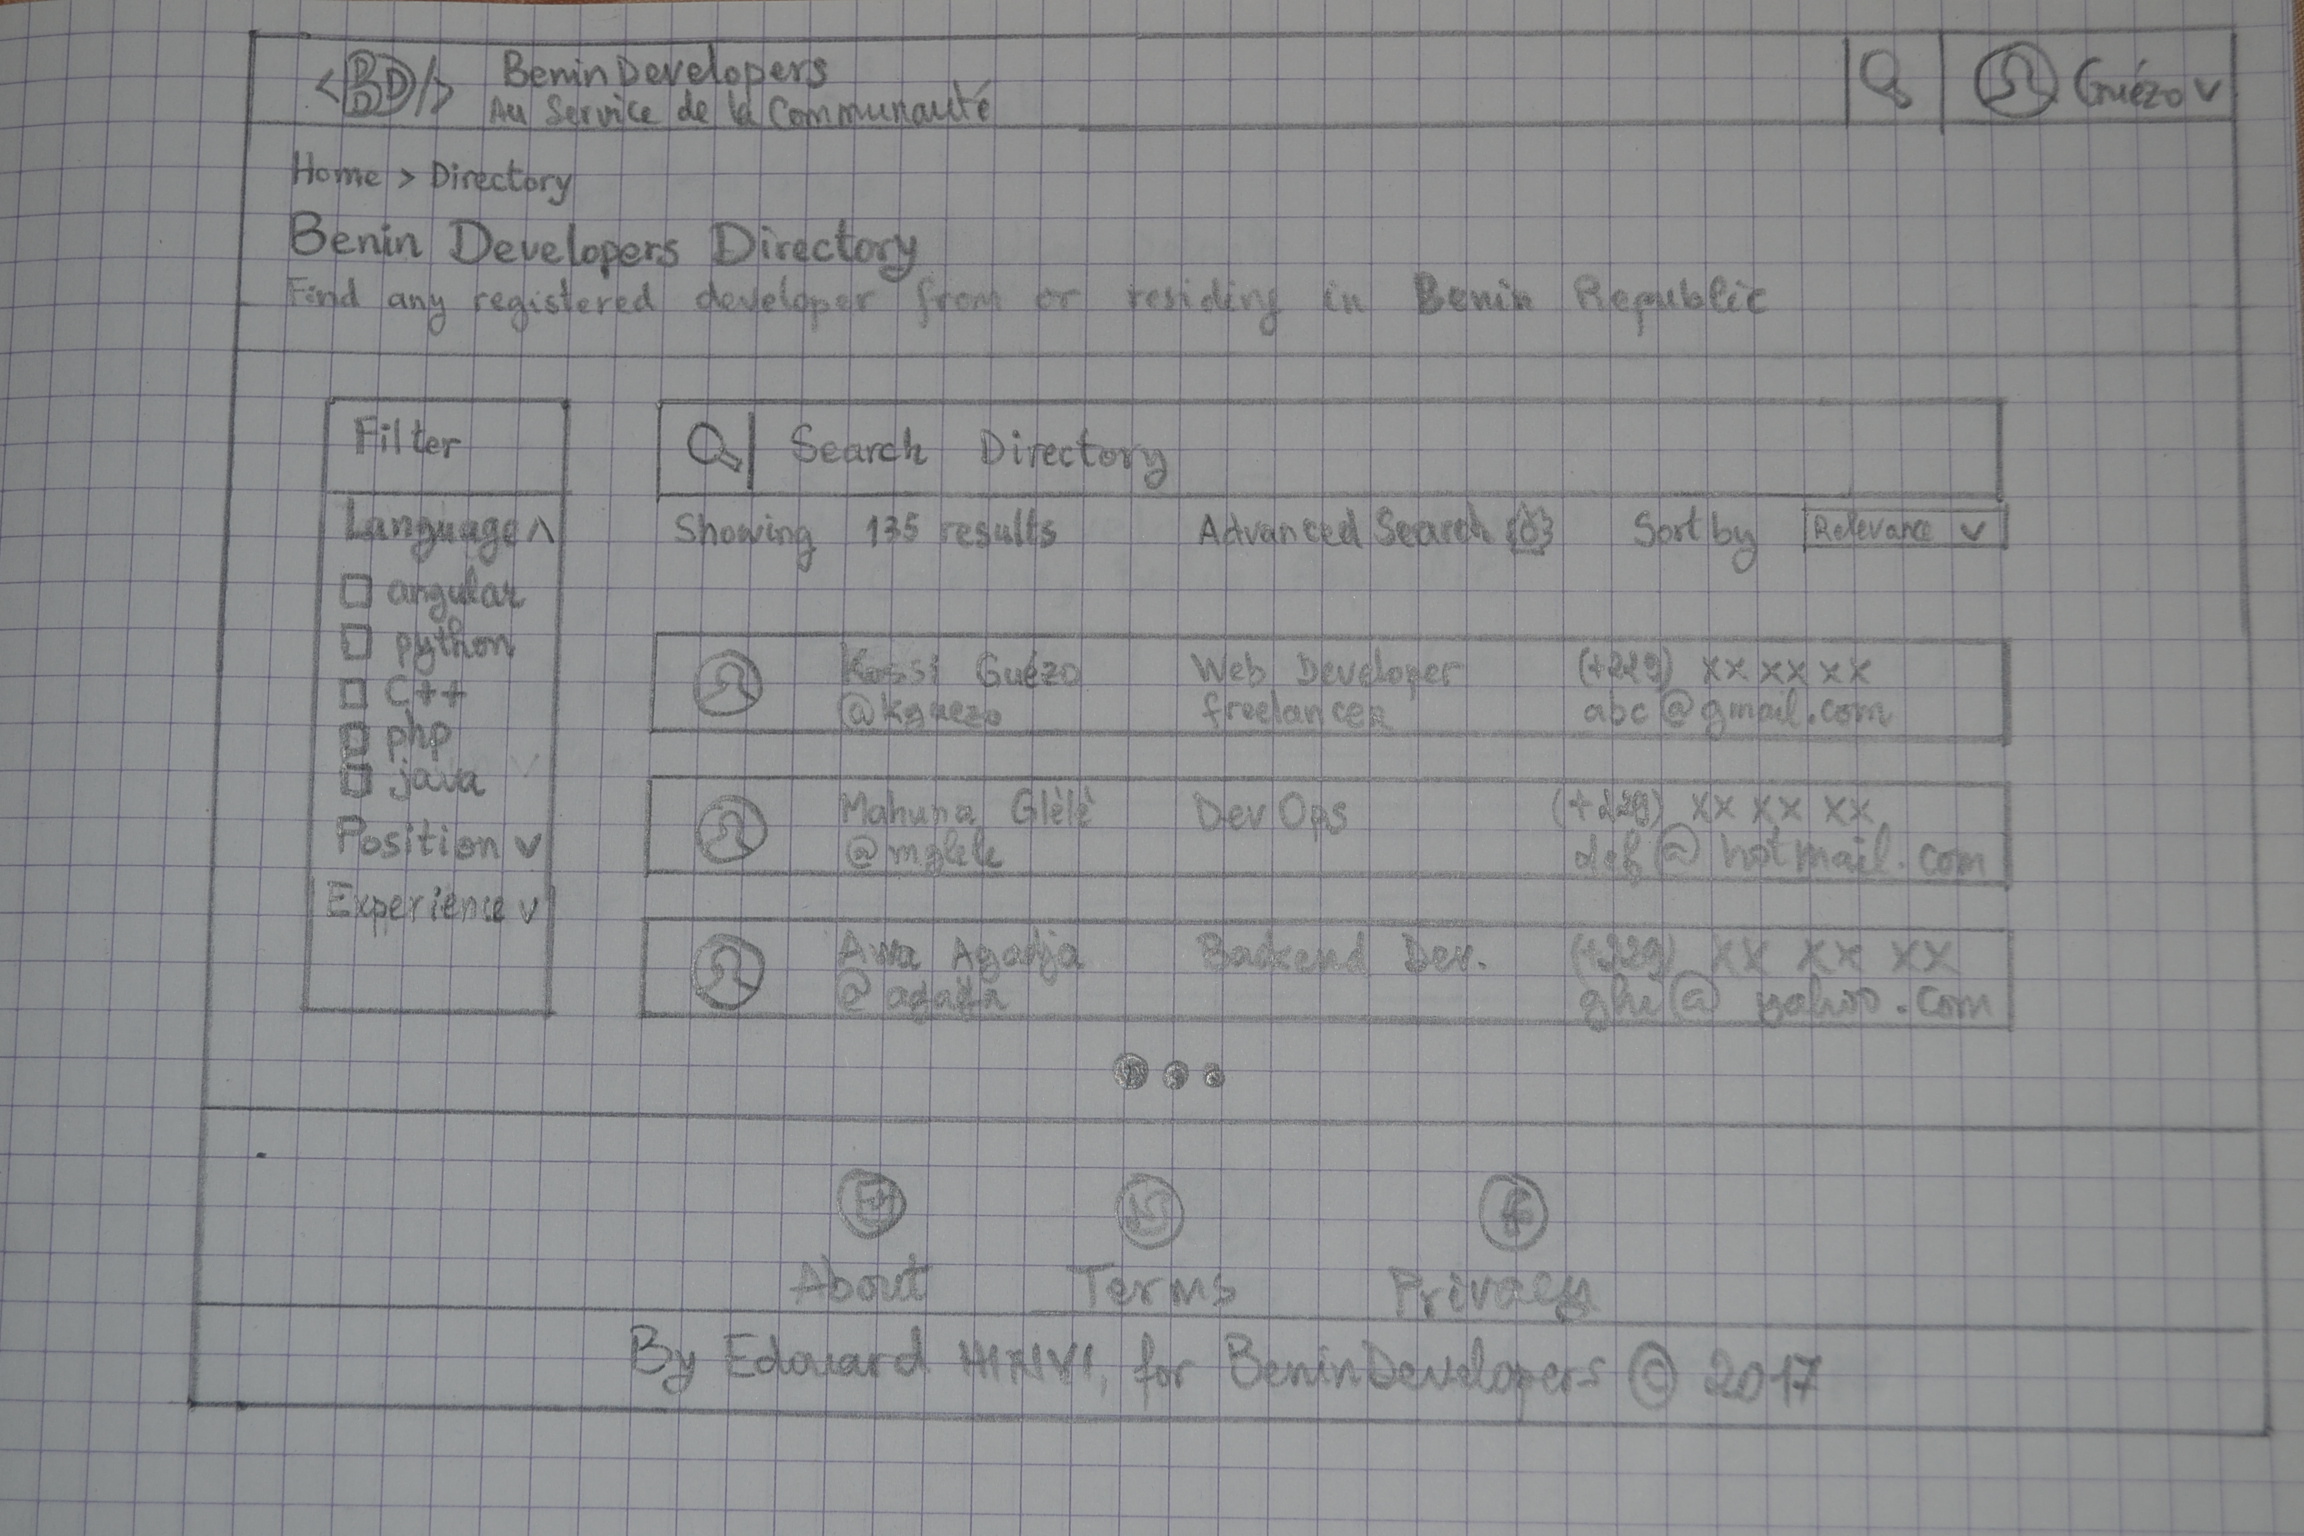 <BDD/> BeninDevelopers
Au Service de la Communauté
Guézo
Home > Directory
Benin Developers Directory
Find any registered developer from or residing in Benin Republic
Filter
Language
angular
python
C++
php
java
Position
Experience
Search Directory
Showing 135 results Advanced Search Sort by Relevance
Kossi Guézo Web Developer (+229) xx xx xx
@kguezo freelancer abc@gmail.com
Mahuna Glèlè DevOps (+229) xx xx xx
@mglele def@hotmail.com
Awa Agadja Backend Dev. (+229) xx xx xx
ghi@yahoo.com
About Terms Privacy
By Edouard HINVI, for BeninDevelopers © 2017